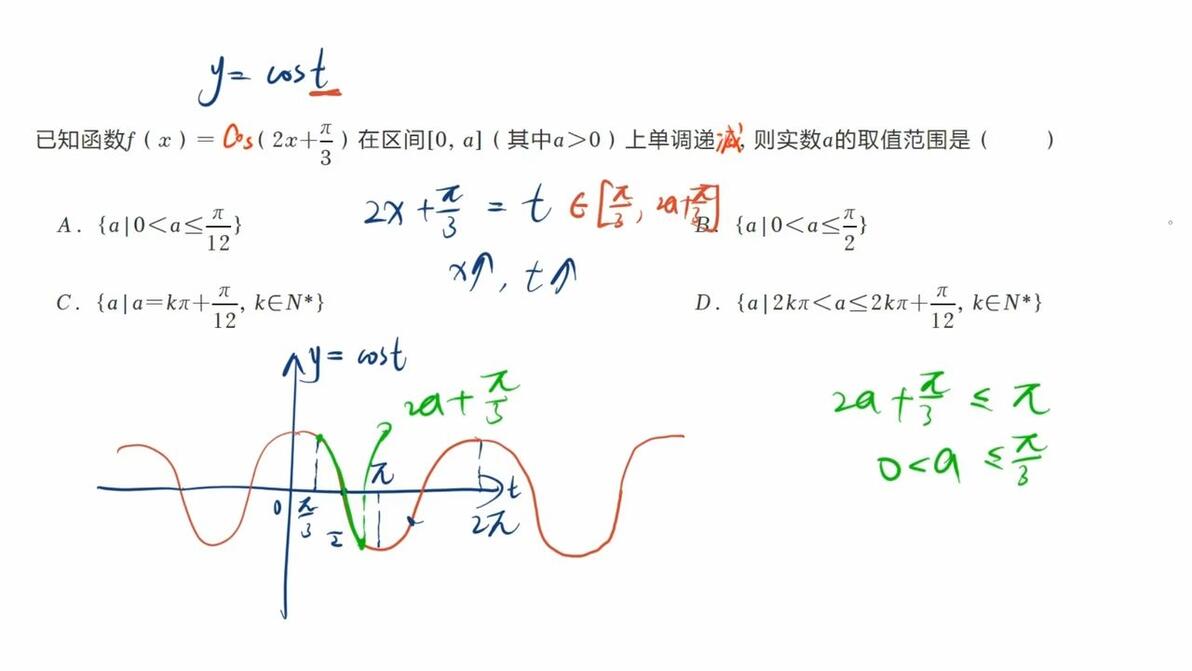 y = cost
已知函数f（x）= Cos（2x+π/3）在区间[0, a]（其中a>0）上单调递减, 则实数a的取值范围是（　　）
2x+π/3 = t ∈ [π/3, 2a+π/3]
A. {a|0<a≤π/12}
B. {a|0<a≤π/2}
x↑, t↑
C. {a|a=kπ+π/12, k∈N*}
D. {a|2kπ<a≤2kπ+π/12, k∈N*}
y = cost
2a+π/3
2a+π/3 ≤ π
0<a ≤ π/3
π
t
0
π/3
2
2π